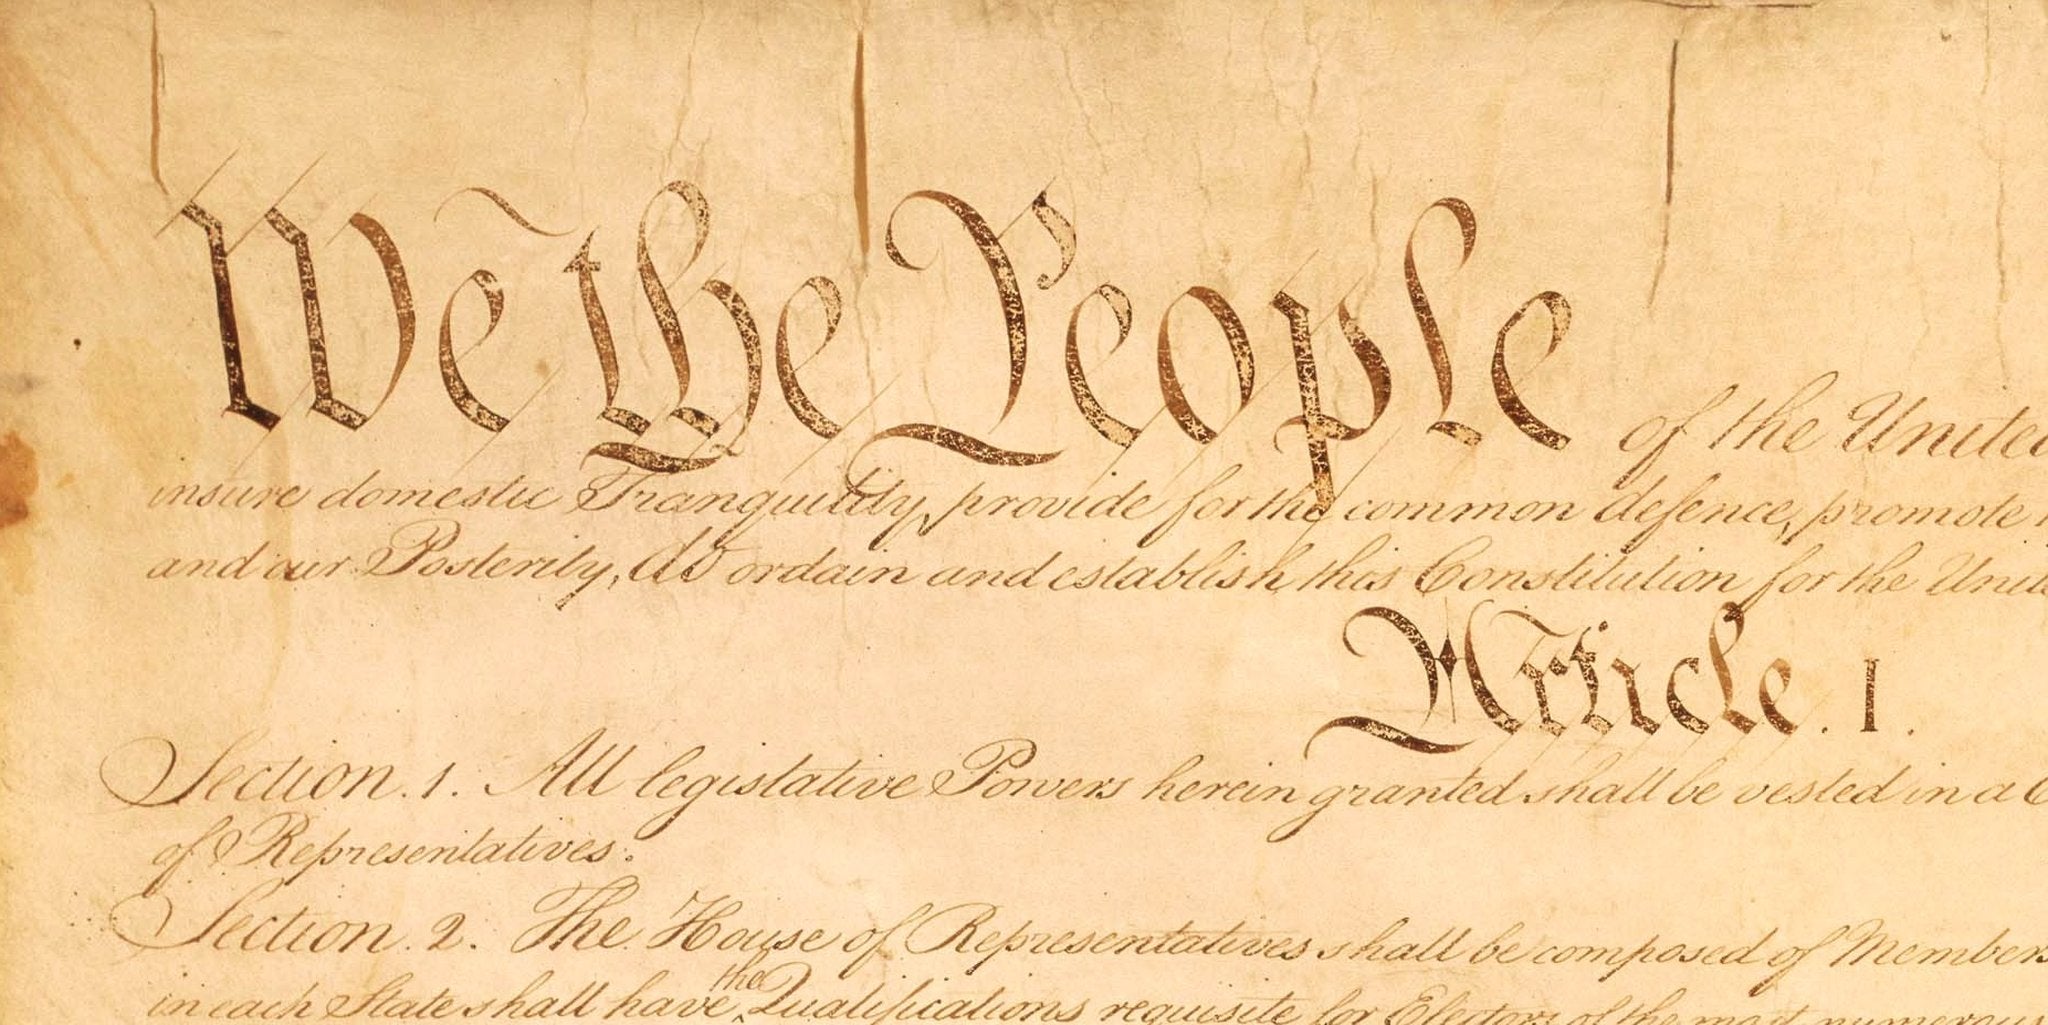 We the People of the United
insure domestic Tranquility, provide for the common defence, promote
and our Posterity, do ordain and establish this Constitution for the Unite
Article. I.
Section. 1. All legislative Powers herein granted shall be vested in a C
of Representatives.
Section. 2. The House of Representatives shall be composed of Members
in each State shall have the Qualifications requisite for Electors of the most numerous